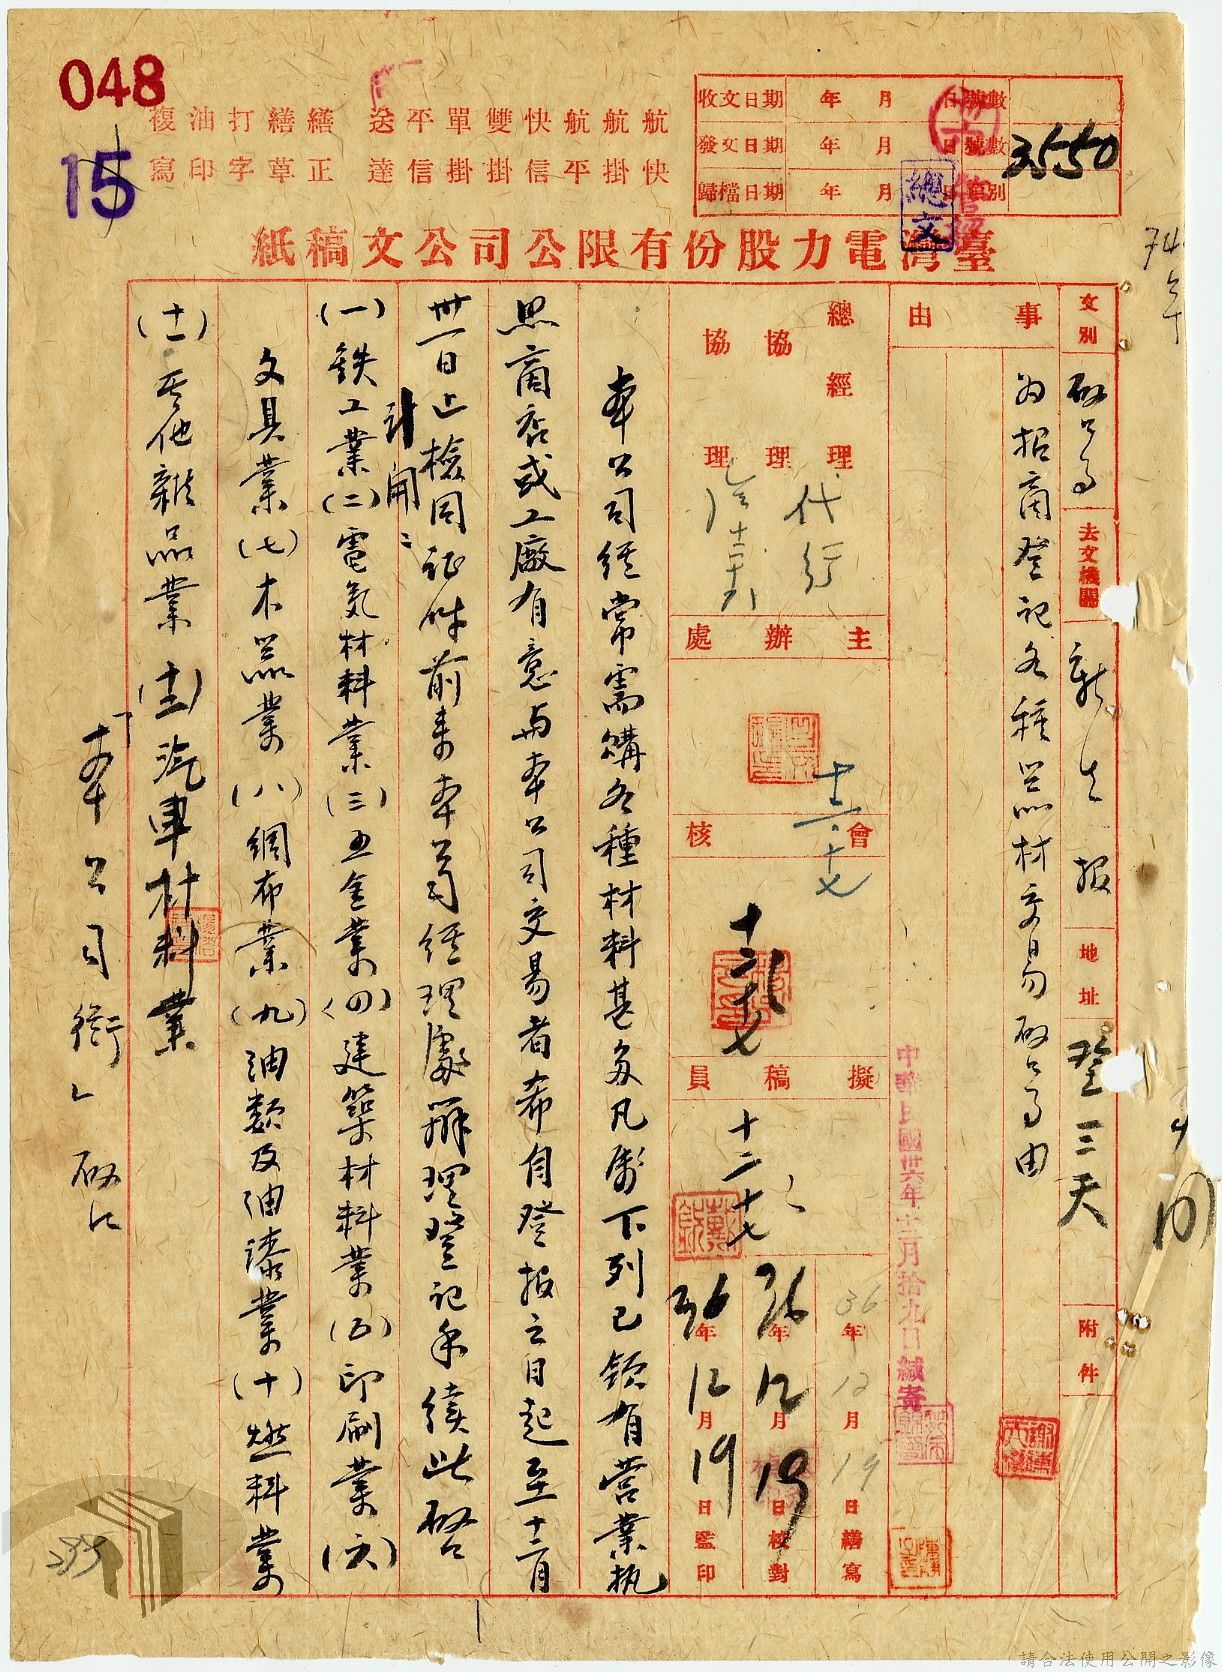 048
15
航快
航掛
航平
快信
雙掛
單掛
平信
送達
繕正
繕草
打字
油印
複寫
收文日期 年 月 日 號數
發文日期 年 月 日 號數 3550
歸檔日期 年 月 日 別
總文
臺灣電力股份有限公司公文稿紙
文別
啟事
去文機關
新生报
地址
登三天
附件
事由
为招商登记各種器材交易啟事由
總經理
協理
協理
代行
主辦處
會核
十二、十七
擬稿員
十二、十七
36年12月19日繕寫
36年12月19日校對
36年12月19日監印
中華民國卅六年十二月拾九日緘寄
本公司經常需購各種材料甚多凡屬下列已領有营業执
照商店或工廠有意与本公司交易者希自登报之日起至十二月
卅一日止檢同証件前来本公司經理處辦理登记手續此啓
計開：
(一)鉄工業(二)電気材料業(三)五金業(四)建築材料業(五)印刷業(六)
文具業(七)木器業(八)綢布業(九)油類及油漆業(十)燃料業
(十一)其他雜品業(十二)汽車材料業
本公司銜 啟
請合法使用公開之影像